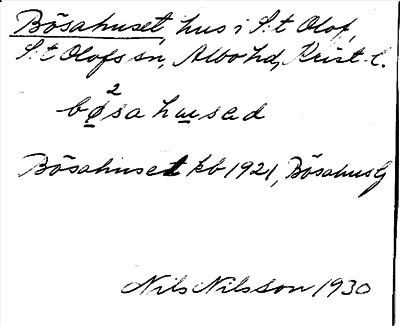 Bösahuset, hus i S:t Olof,
S:t Olofs sn, Albo hd, Krist. l.
bø²sahusad
Bösahuset kb 1921, Bösahus
Nils Nilsson 1930